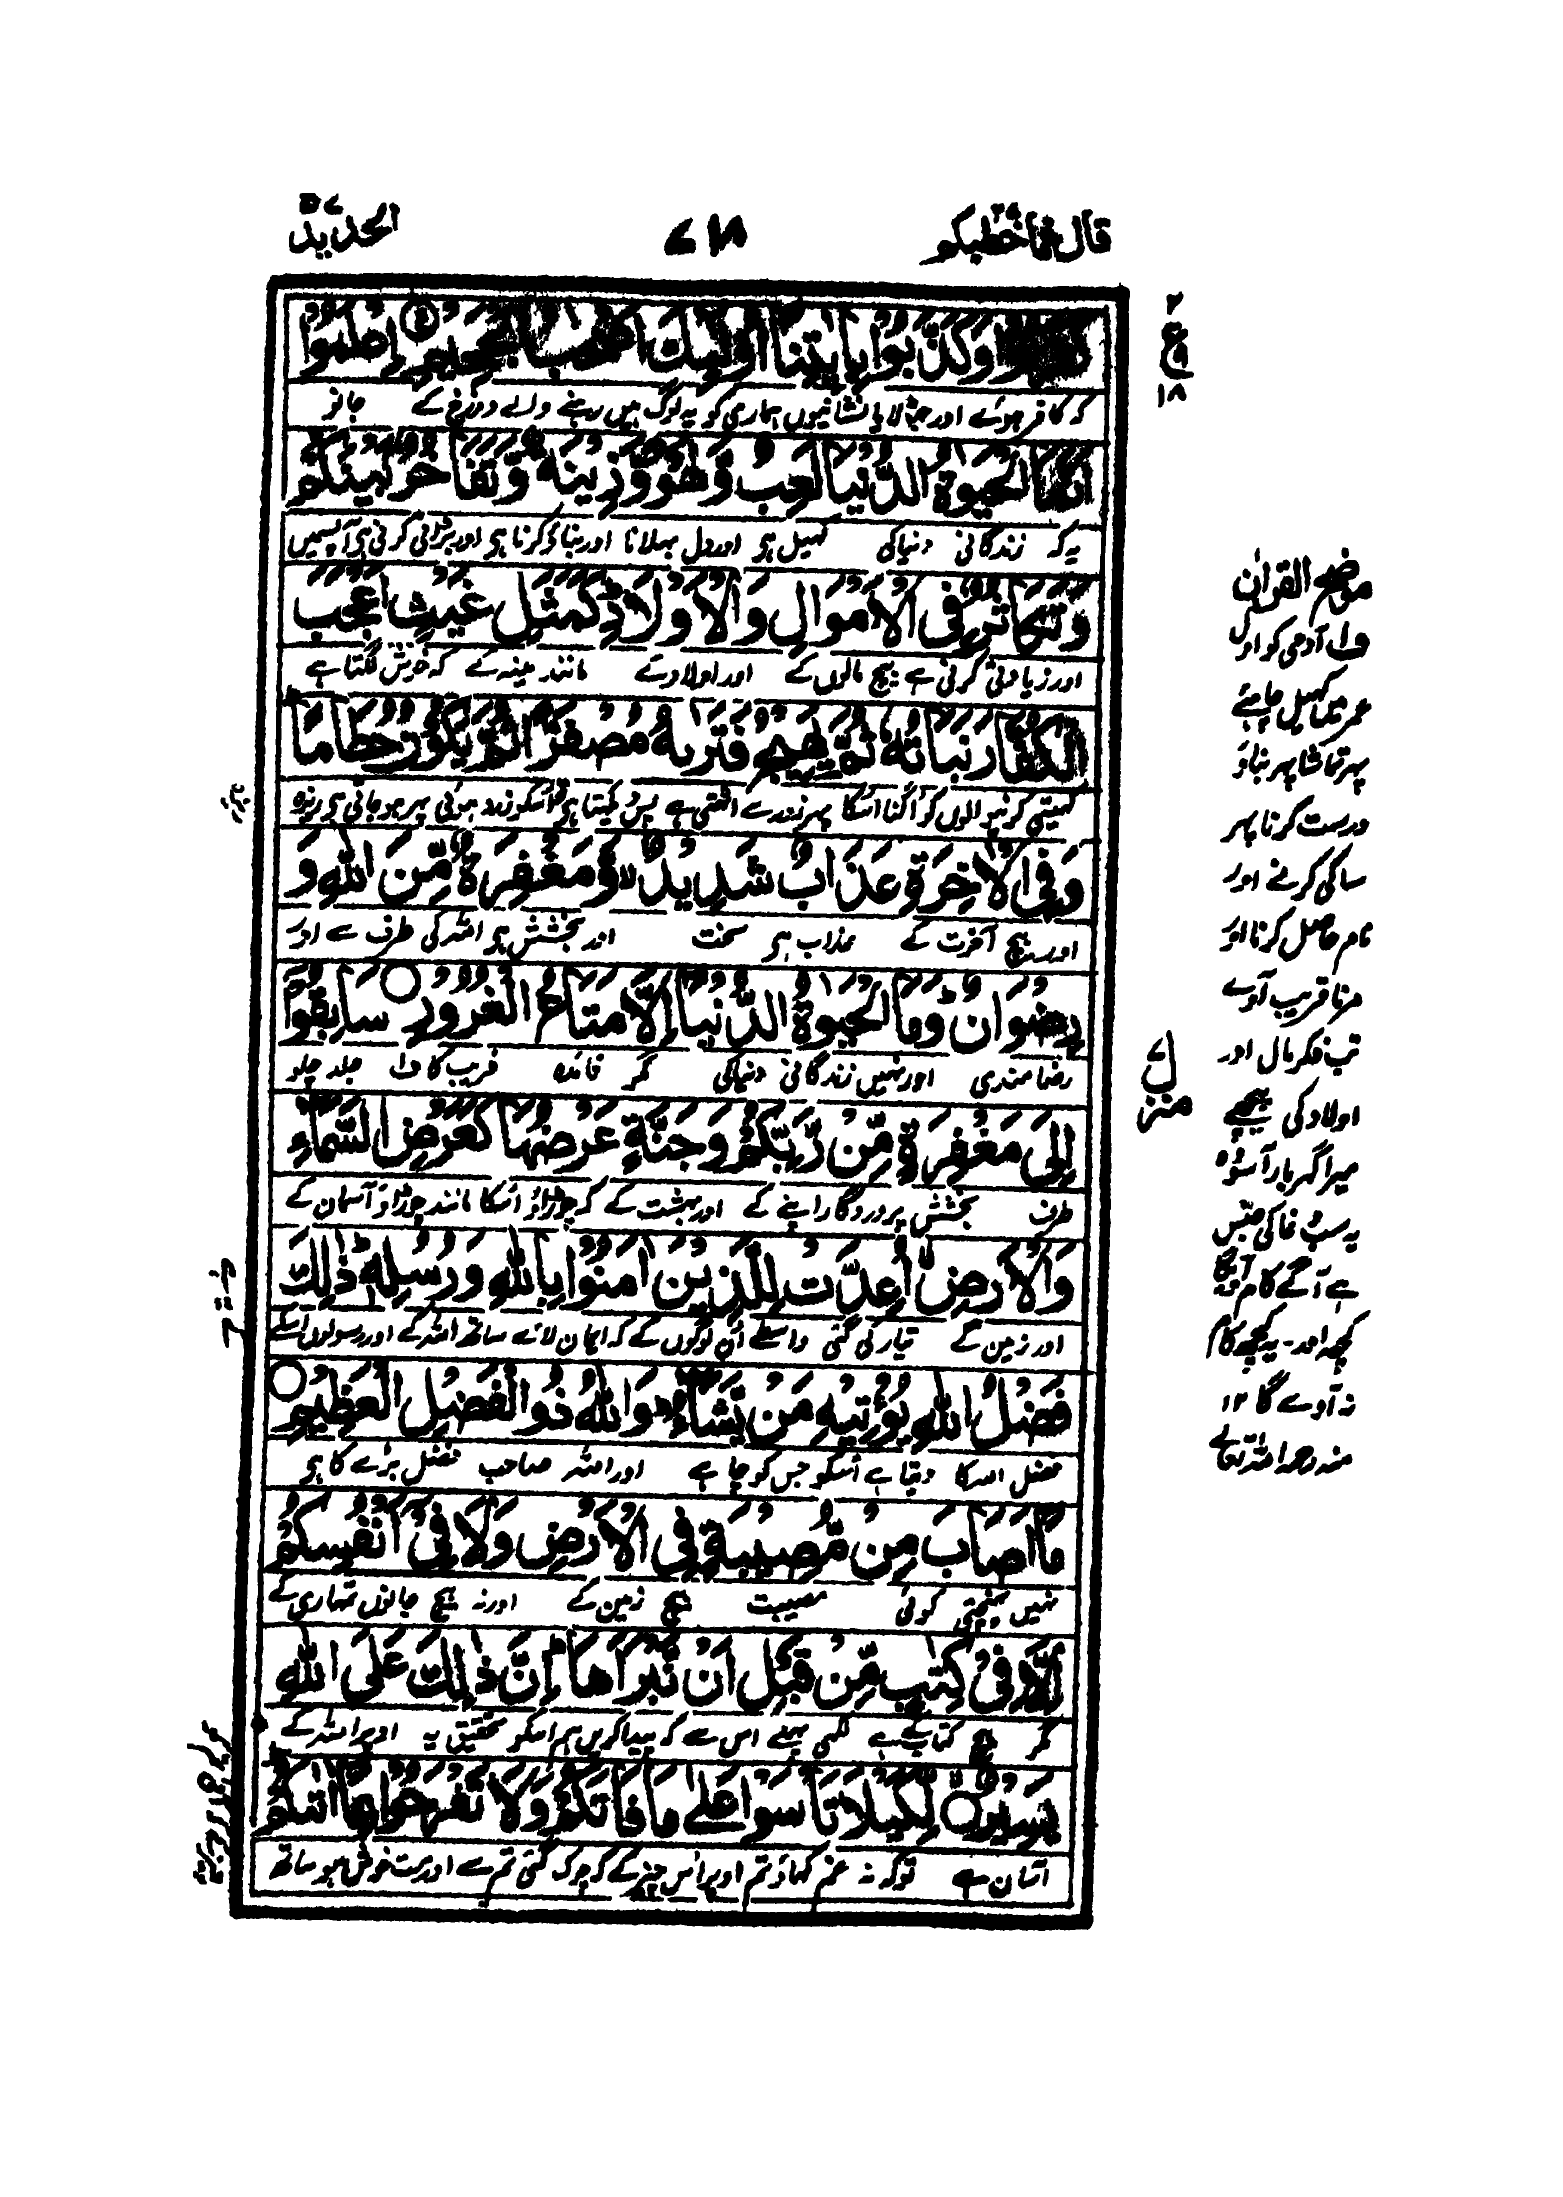 قال فما خطبكم ٢٧
٧١٨
الحديد ٥٧
كَفَرُوا وَكَذَّبُوا بِاٰيٰتِنَا اُولٰٓئِكَ اَصْحٰبُ الْجَحِيْمِ اِعْلَمُوْٓا
کہ کافر ہوئے اور جھٹلایا نشانیوں ہماری کو یہ لوگ ہیں رہنے والے دوزخ کے جانو
اَنَّمَا الْحَيٰوةُ الدُّنْيَا لَعِبٌ وَّلَهْوٌ وَّزِيْنَةٌ وَّتَفَاخُرٌۢ بَيْنَكُمْ
یہ کہ زندگانی دنیا کی کھیل ہی اور دل بہلانا اور بناؤ کرنا ہی اور بڑائی کرنی ہی آپسمیں
وَتَكَاثُرٌ فِى الْاَمْوَالِ وَالْاَوْلَادِ كَمَثَلِ غَيْثٍ اَعْجَبَ
اور زیادتی کرنی ہے بیچ مالوں کے اور اولاد کے مانند مینہ کے کہ خوش لگتا ہے
الْكُفَّارَ نَبَاتُهٗ ثُمَّ يَهِيْجُ فَتَرٰىهُ مُصْفَرًّا ثُمَّ يَكُوْنُ حُطَامًا
کھیتی کرنیوالوں کو اگنا اسکا پھر زور سے اٹھتی ہے پس دیکھتا ہی تو اسکو زرد ہوئی پھر ہو جاتی ہی ریزہ
وَفِى الْاٰخِرَةِ عَذَابٌ شَدِيْدٌ لا وَّمَغْفِرَةٌ مِّنَ اللّٰهِ وَ
اور بیچ آخرت کے عذاب ہی سخت اور بخشش ہی اللہ کی طرف سے اور
رِضْوَانٌ ط وَمَا الْحَيٰوةُ الدُّنْيَآ اِلَّا مَتَاعُ الْغُرُوْرِ سَابِقُوْٓا
رضامندی اور نہیں زندگانی دنیا کی مگر فائدہ فریب کا ف جلد چلو
اِلٰى مَغْفِرَةٍ مِّنْ رَّبِّكُمْ وَجَنَّةٍ عَرْضُهَا كَعَرْضِ السَّمَآءِ
طرف بخشش پروردگار اپنے کے اور بہشت کے کہ چوڑاؤ اسکا مانند چوڑاؤ آسمان کے
وَالْاَرْضِ اُعِدَّتْ لِلَّذِيْنَ اٰمَنُوْا بِاللّٰهِ وَرُسُلِهٖ ط ذٰلِكَ
اور زمین کے تیار کی گئی واسطے ان لوگوں کے کہ ایمان لائے ساتھ اللہ کے اور رسولوں اسکے
فَضْلُ اللّٰهِ يُؤْتِيْهِ مَنْ يَّشَآءُ وَاللّٰهُ ذُو الْفَضْلِ الْعَظِيْمِ
فضل اللہ کا دیتا ہے اسکو جس کو چاہے اور اللہ صاحب فضل بڑے کا ہی
مَآ اَصَابَ مِنْ مُّصِيْبَةٍ فِى الْاَرْضِ وَلَا فِىْٓ اَنْفُسِكُمْ
نہیں پہنچتی کوئی مصیبت بیچ زمین کے اور نہ بیچ جانوں تمہاری کے
اِلَّا فِىْ كِتٰبٍ مِّنْ قَبْلِ اَنْ نَّبْرَاَهَا ط اِنَّ ذٰلِكَ عَلَى اللّٰهِ
مگر بیچ کتاب کے ہے لکھی پہلے اس سے کہ پیدا کریں ہم اسکو تحقیق یہ اوپر اللہ کے
يَسِيْرٌ لِّكَيْلَا تَاْسَوْا عَلٰى مَا فَاتَكُمْ وَلَا تَفْرَحُوْا بِمَآ اٰتٰىكُمْ
آسان ہے توکہ نہ غم کھاؤ تم اوپر اس چیز کے کہ چوک گئی تم سے اور مت خوش ہو ساتھ
٢
ع
١٨
منزل ٧
موضح القرآن
ف آدمی کو اول
عمر میں کھیل چاہئے
پھر تماشا پھر بناؤ
درست کرنا پھر
ساکھ کرنے اور
نام حاصل کرنا اور
مرنا قریب آوے
تب فکر مال اور
اولاد کی پیچھے
میرا گھر بار آسودہ
یہ سب دغا کی جنس
ہے آگے کام آتا
کچھ اور ۔ یہ کچھ کام
نہ آوے گا ١٢
منہ رحمہ اللہ تعالے